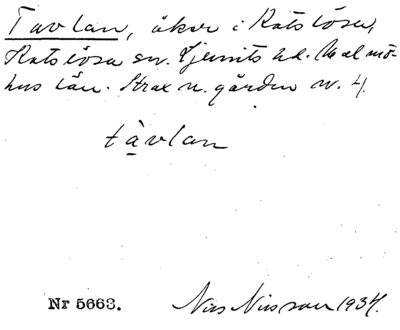 Tavlan, åker i Katslösa,
Katslösa sn. Ljunits hd. Malmö-
hus län. Strax n. gården nr. 4.
tàvlan
Nr 5663.
Nils Nilsson 1937.